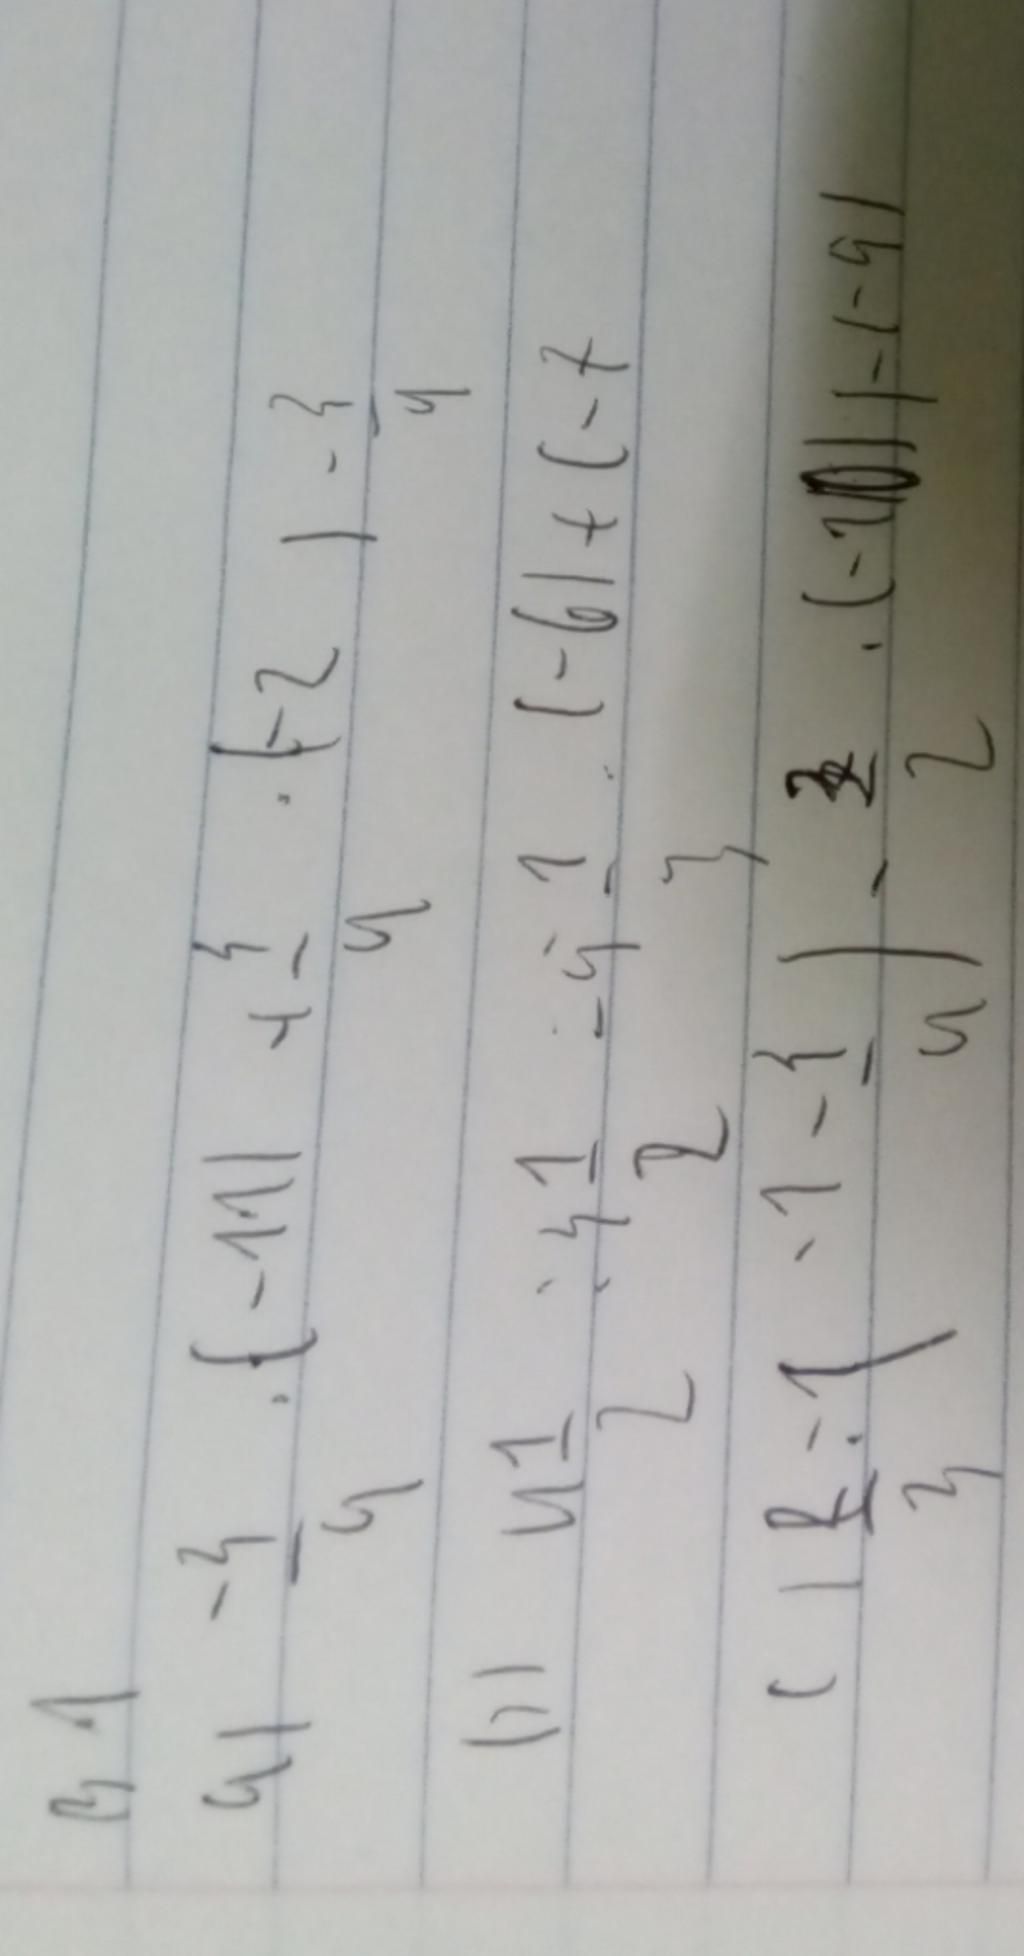 B1
a) -3/4 . (-11) + 3/4 . (-2) - 3/4
b) 4 1/2 : 3 1/2 : -4 1/3 . (-6) + (-7
c) 2/3 : (-1 - 3/4) - 3/2 . (-20) - (-9)